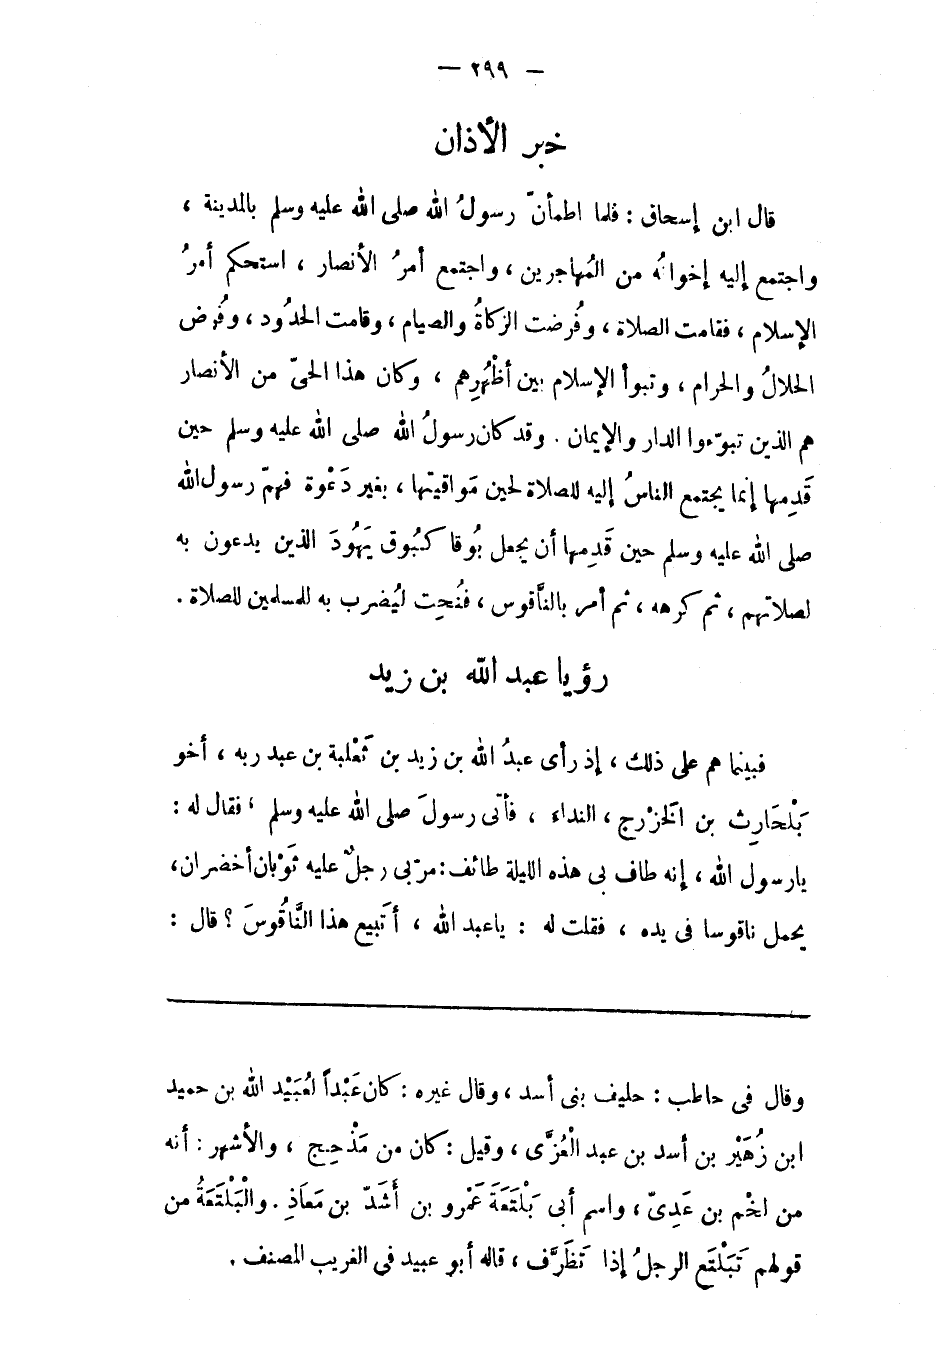 — ٢٩٩ —
خبر الأذان
قال ابن إسحاق : فلما اطمأنّ رسولُ الله صلى الله عليه وسلم بالمدينة ،
واجتمع إليه إخوانُه من المُهاجرين ، واجتمع أمرُ الأنصار ، استحكم أمرُ
الإسلام ، فقامت الصلاة ، وفُرضت الزكاةُ والصيام ، وقامت الحدُود ، وفُرض
الحلالُ والحرام ، وتبوأ الإسلام بين أظْهُرِهم ، وكان هذا الحىّ من الأنصار
هم الذين تبوّءوا الدار والإيمان . وقد كان رسولُ الله صلى الله عليه وسلم حين
قَدِمها إنما يجتمع الناسُ إليه للصلاة لحين مَواقيتها ، بغير دَعْوة فهمّ رسول الله
صلى الله عليه وسلم حين قَدِمها أن يجعل بُوقا كبُوق يَهُودَ الذين يدعون به
لصلاتهم ، ثم كرهه ، ثم أمر بالنَّاقوس ، فنُحِت ليُضرب به للمسلمين للصلاة .
رؤيا عبد الله بن زيد
فبينما هم على ذلك ، إذ رأى عبدُ الله بن زيد بن ثَعْلبة بن عبد ربه ، أخو
بَلْحَارِث بن الَخزْرج ، النداء ، فأتى رسولَ صلى الله عليه وسلم ، فقال له :
يارسول الله ، إنه طاف بى هذه الليلة طائف : مرّ بى رجلٌ عليه ثَوْبان أخضران ،
يحمل ناقوسا فى يده ، فقلت له : ياعبد الله ، أتَبيع هذا النَّاقُوسَ ؟ قال :
وقال فى حاطب : حليف بنى أسد ، وقال غيره : كان عَبْداً لعُبَيْد الله بن حميد
ابن زُهَيْر بن أسد بن عبد الْعُزَّى ، وقيل : كان من مَذْحِج ، والأشهر : أنه
من لخْم بن عَدِىّ ، واسم أبى بَلْتَعَةَ عَمْرو بن أَشَدّ بن مَعاَذِ . والْبَلْتَعَةُ من
قولهم تَبَلْتَع الرجلُ إذا تَظَرَّف ، قاله أبو عبيد فى الغريب المصنف .